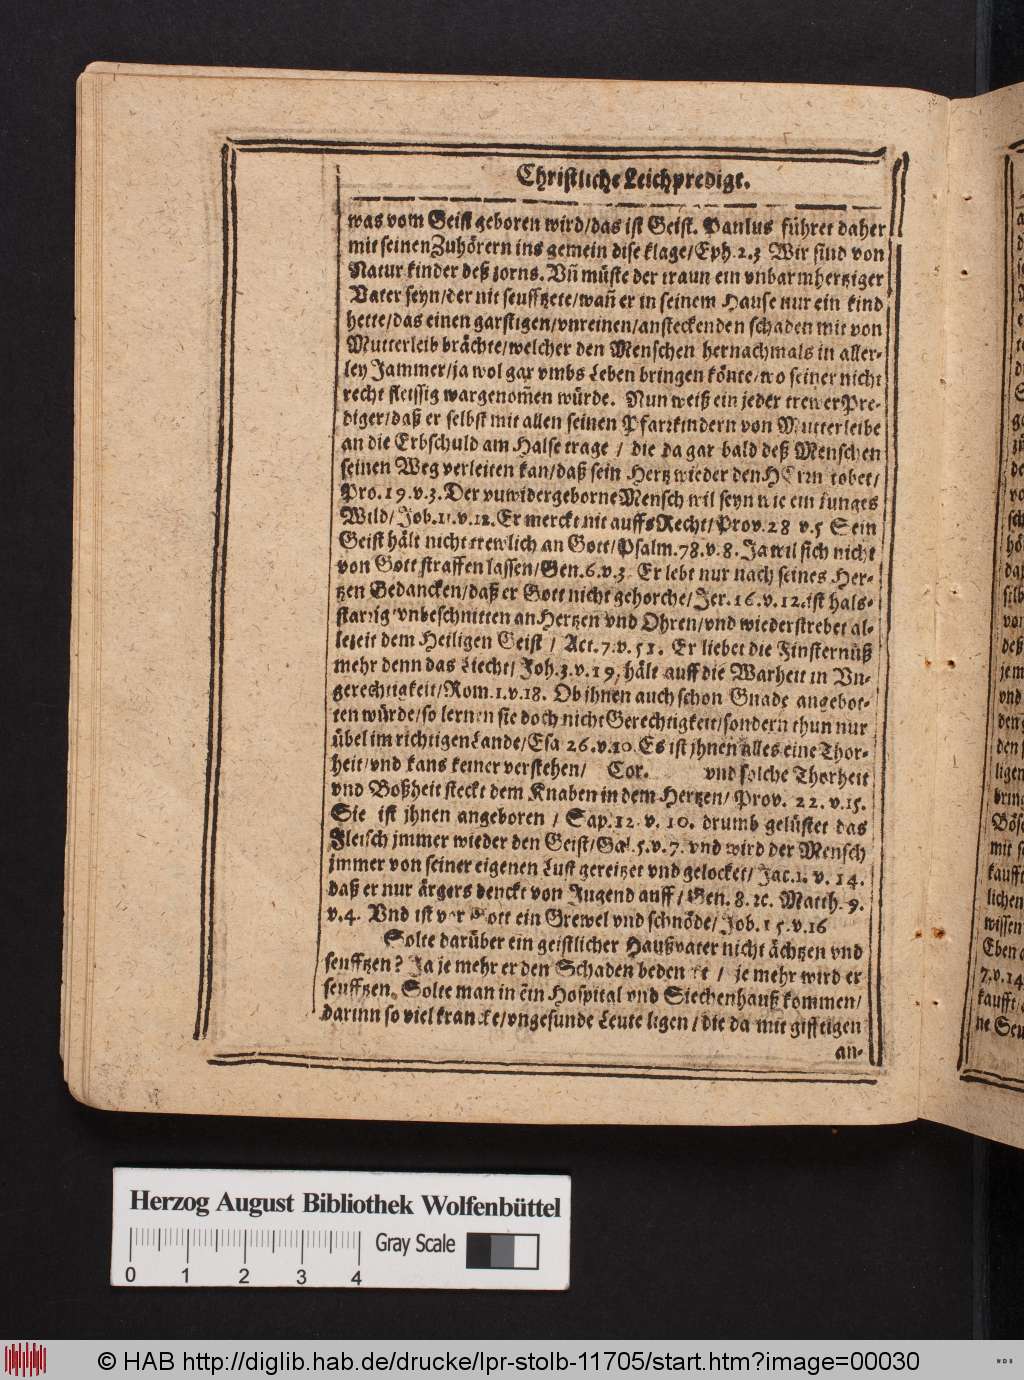 Christliche Leichpredigt.
was vom Geist geboren wird/das ist Geist. Paulus führet daher
mit seinen Zuhörern ins gemein dise klage/Eph.2.3 Wir sind von
Natur kinder deß zorns. Vñ müste der traun ein vnbarmhertziger
Vater seyn/der nit seufftzete/wañ er in seinem Hause nur ein kind
hette/das einen garstigen/vnreinen/ansteckenden schaden mit von
Mutterleib brächte/welcher den Menschen hernachmals in aller-
ley Jammer/ja wol gar vmbs Leben bringen könte/wo seiner nicht
recht fleissig wargenom̃en würde. Nun weiß ein jeder trewer Pre-
diger/daß er selbst mit allen seinen Pfarrkindern von Mutterleibe
an die Erbschuld am Halse trage / die da gar bald deß Menschen
seinen Weg verleiten kan/daß sein Hertz wieder den HErrn tobet/
Pro.19.v.3. Der vnwidergeborne Mensch wil seyn wie ein junges
Wild/Job.11.v.12. Er merckt nit auffs Recht/Prov.28 v.5 Sein
Geist hält nicht trewlich an Gott/Psalm.78.v.8. Ja wil sich nicht
von Gott straffen lassen/Gen.6.v.3. Er lebt nur nach seines Her-
tzen Gedancken/daß er Gott nicht gehorche/Jer.16.v.12. ist hals-
starrig vnbeschnitten an Hertzen vnd Ohren/vnd wiederstrebet al-
lezeit dem Heiligen Geist / Act.7.v.51. Er liebet die Finsternüß
mehr denn das Liecht/Joh.3.v.19, hält auff die Warheit in Vn-
gerechtigkeit/Rom.1.v.18. Ob ihnen auch schon Gnade angebot-
ten würde/so lernen sie doch nicht Gerechtigkeit/sondern thun nur
übel im richtigen Lande/Esa 26.v.10. Es ist jhnen alles eine Thor-
heit/vnd kans keiner verstehen/ Cor. vnd solche Thorheit
vnd Boßheit steckt dem Knaben in dem Hertzen/Prov. 22. v.15.
Sie ist jhnen angeboren / Sap.12. v. 10. drumb gelüstet das
Fleisch jmmer wieder den Geist/Gal.5.v.7. vnd wird der Mensch
jmmer von seiner eigenen Lust gereitzet vnd gelocket/Jac.1. v. 14.
daß er nur ärgers denckt von Jugend auff/Gen. 8. ꝛc. Matth. 9.
v.4. Vnd ist vor Gott ein Grewel vnd schnöde/Job.15.v.16
Solte darüber ein geistlicher Haußvater nicht ächtzen vnd
seufftzen? Ja je mehr er den Schaden bedencket / je mehr wird er
seufftzen. Solte man in ein Hospital vnd Siechenhauß kommen/
darinn so viel krancke/vngesunde Leute ligen/die da mit gifftigen
an-
Herzog August Bibliothek Wolfenbüttel
Gray Scale
0 1 2 3 4
© HAB http://diglib.hab.de/drucke/lpr-stolb-11705/start.htm?image=00030